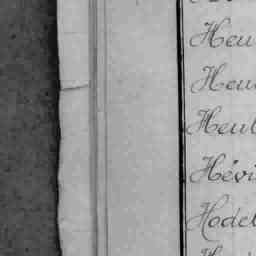 Heu
Heu
Heul
Hévi
Hodel